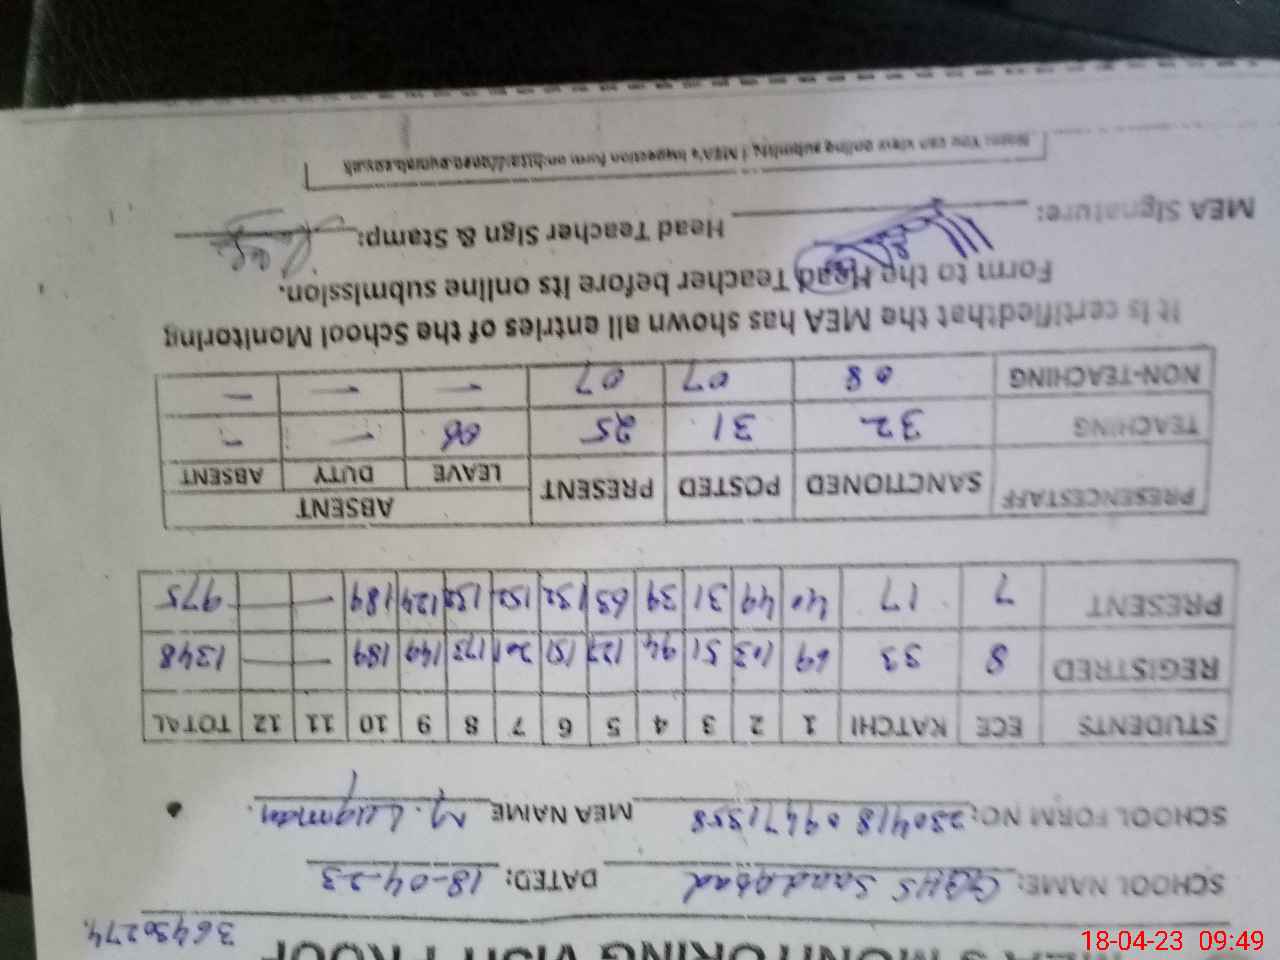 MEA'S MONITORING VISIT PROOF
36430274
SCHOOL NAME: GGHS Saadabad DATED: 18-04-23
SCHOOL FORM NO: 230418 09471358 MEA NAME M. Luqman.
STUDENTS ECE KATCHI 1 2 3 4 5 6 7 8 9 10 11 12 TOTAL
REGISTRED 8 33 69 103 51 94 127 151 201 173 149 189 — — 1348
PRESENT 7 17 40 49 31 39 63 132 152 132 124 189 — — 975
PRESENCESTAFF SANCTIONED POSTED PRESENT ABSENT
LEAVE DUTY ABSENT
TEACHING 32 31 25 06 — —
NON-TEACHING 08 07 07 — — —
It is certifiedthat the MEA has shown all entries of the School Monitoring
Form to the Head Teacher before its online submission.
MEA Signature: Head Teacher Sign & Stamp:
Note: You can view online submitted MEA's inspection form on
18-04-23 09:49